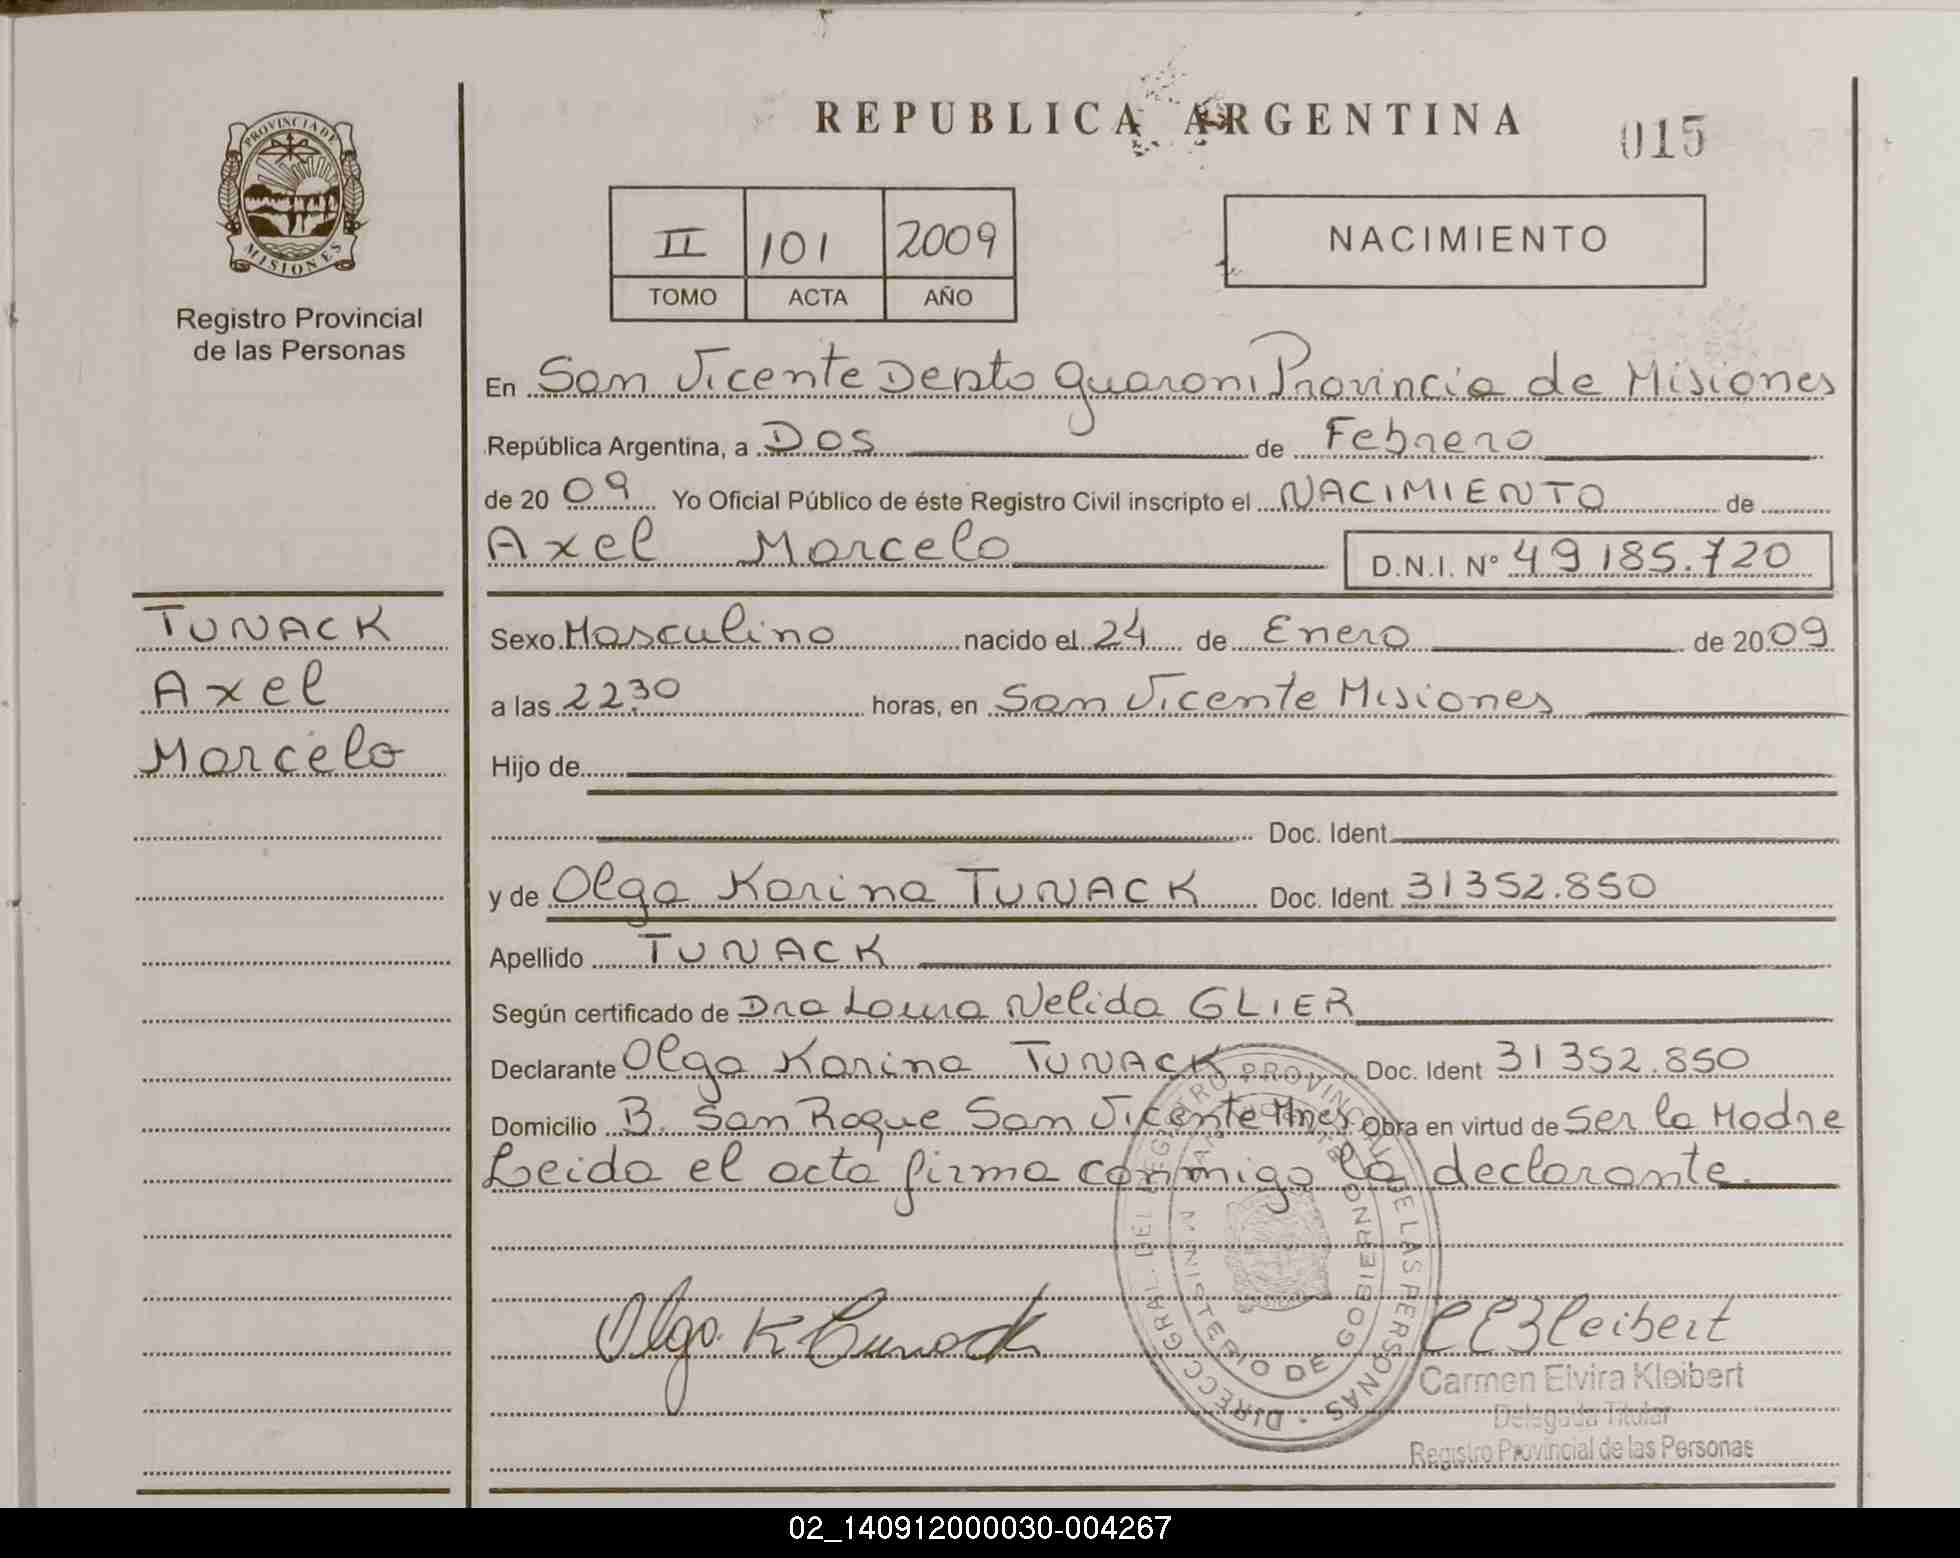 REPUBLICA ARGENTINA
015
PROVINCIA DE
MISIONES
Registro Provincial
de las Personas
II 101 2009
TOMO ACTA AÑO
NACIMIENTO
En San Vicente Depto Guarani Provincia de Misiones
República Argentina, a Dos de Febrero
de 20 09 Yo Oficial Público de éste Registro Civil inscripto el NACIMIENTO de
Axel Marcelo D.N.I. Nº 49.185.720
TUNACK
Axel
Marcelo
Sexo Masculino nacido el 24 de Enero de 2009
a las 22:30 horas, en San Vicente Misiones
Hijo de
Doc. Ident.
y de Olga Karina TUNACK Doc. Ident. 31352.850
Apellido TUNACK
Según certificado de Dra Laura Nelida GLIER
Declarante Olga Karina TUNACK Doc. Ident 31352.850
Domicilio B. San Roque San Vicente Mnes Obra en virtud de Ser la Madre
Leida el acta firma conmigo la declarante.
DIRECC. GRAL. DEL REGISTRO PROVINCIAL DE LAS PERSONAS
MINISTERIO DE GOBIERNO
Olga K Tunack
C E Kleibert
Carmen Elvira Kleibert
Delegada Titular
Registro Provincial de las Personas
02_140912000030-004267